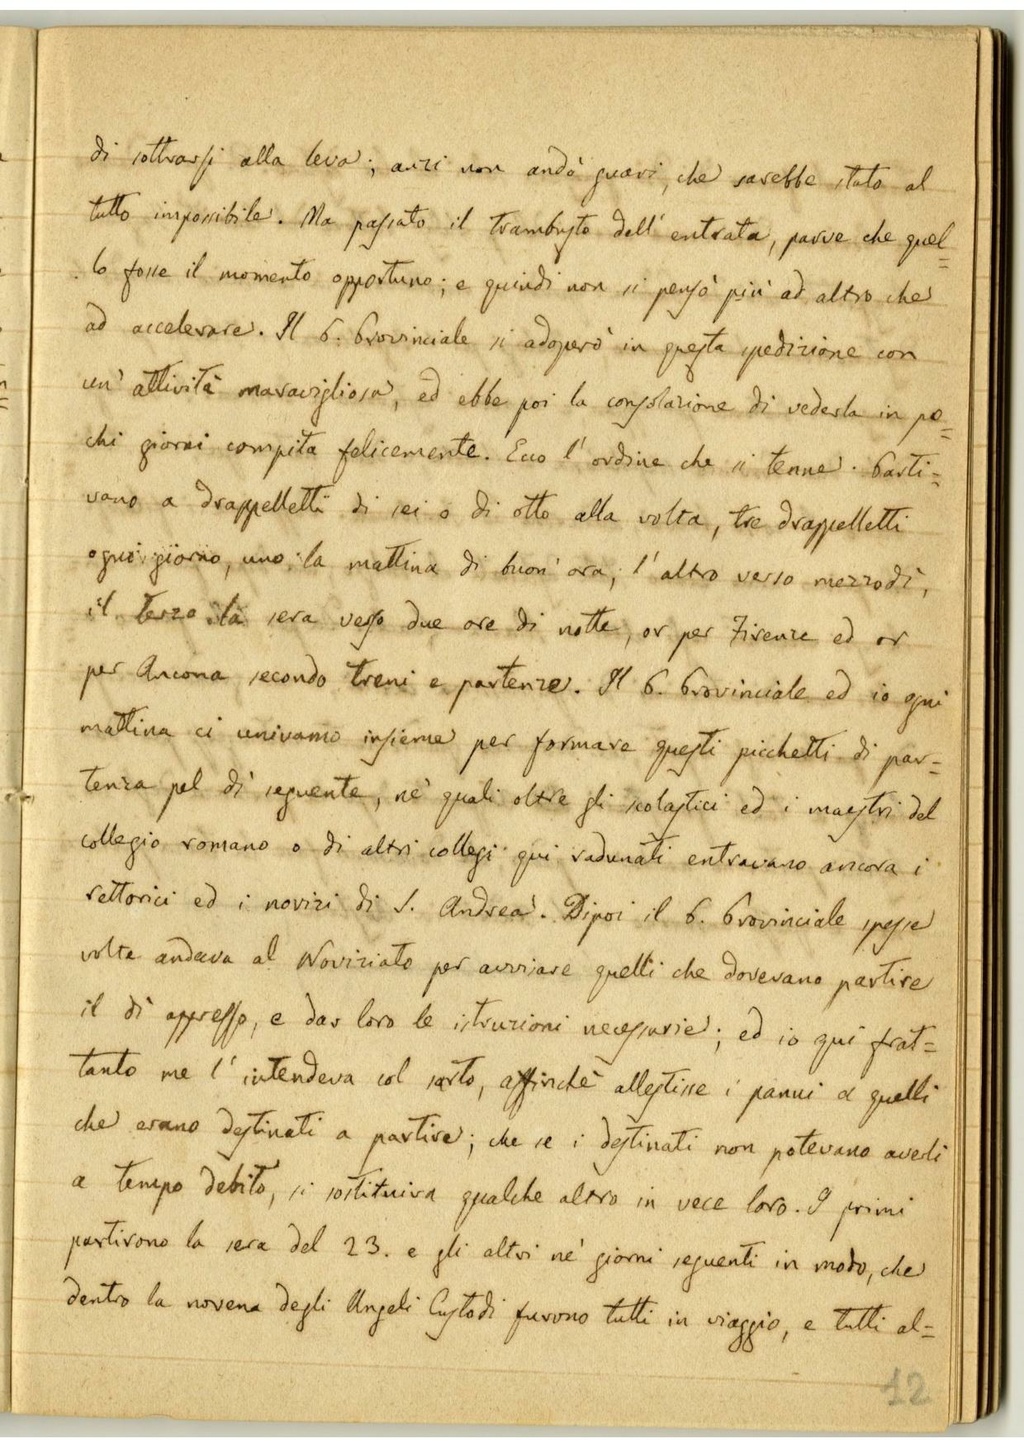 di sottrarsi alla leva; anzi non andò guari, che sarebbe stato al
tutto impossibile. Ma passato il trambusto dell' entrata, parve che quel=
lo fosse il momento opportuno; e quindi non si pensò più ad altro che
ad accelerare. Il P. Provinciale si adoperò in questa spedizione con
un' attività maravigliosa, ed ebbe poi la consolazione di vederla in po=
chi giorni compita felicemente. Ecco l' ordine che si tenne. Parti=
vano a drappelletti di sei o di otto alla volta, tre drappelletti
ogni giorno, uno la mattina di buon' ora, l' altro verso mezzodì,
il terzo la sera verso due ore di notte, or per Firenze ed or
per Ancona secondo treni e partenze. Il P. Provinciale ed io ogni
mattina ci univamo insieme per formare questi picchetti di par=
tenza pel dì seguente, ne' quali oltre gli scolastici ed i maestri del
collegio romano o di altri collegi qui radunati entravano ancora i
rettorici ed i novizi di S. Andrea. Dipoi il P. Provinciale spesse
volte andava al Noviziato per avvisare quelli che dovevano partire
il dì appresso, e dar loro le istruzioni necessarie; ed io qui frat=
tanto me l' intendeva col sarto, affinchè allestisse i panni a quelli
che erano destinati a partire; che se i destinati non potevano averli
a tempo debito, si sostituiva qualche altro in vece loro. I primi
partirono la sera del 23. e gli altri ne' giorni seguenti in modo, che
dentro la novena degli Angeli Custodi furono tutti in viaggio, e tutti al=
12